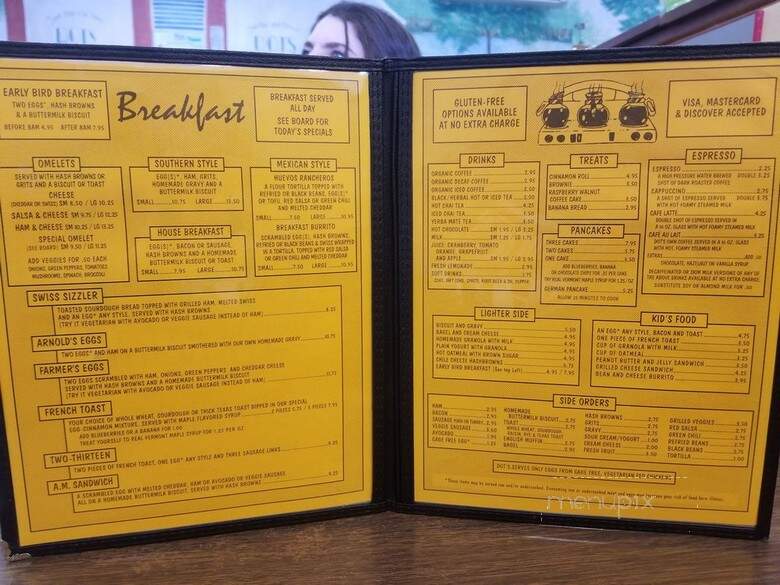 EARLY BIRD BREAKFAST
TWO EGGS*, HASH BROWNS
& A BUTTERMILK BISCUIT
BEFORE 8AM 4.95 AFTER 8AM 7.95
Breakfast
BREAKFAST SERVED
ALL DAY
SEE BOARD FOR
TODAY'S SPECIALS
OMELETS
SERVED WITH HASH BROWNS OR
GRITS AND A BISCUIT OR TOAST
CHEESE
(CHEDDAR OR SWISS) SM 8.50 / LG 10.25
SALSA & CHEESE SM 9.75 / LG 11.25
HAM & CHEESE SM 10.25 / LG 12.25
SPECIAL OMELET
(SEE BOARD) SM 9.50 / LG 11.25
ADD VEGGIES FOR .50 EACH
ONIONS, GREEN PEPPERS, TOMATOES
MUSHROOMS, SPINACH, BROCCOLI
SOUTHERN STYLE
EGG(S)*, HAM, GRITS,
HOMEMADE GRAVY AND A
BUTTERMILK BISCUIT
SMALL 10.75 LARGE 13.50
HOUSE BREAKFAST
EGG(S)*, BACON OR SAUSAGE,
HASH BROWNS AND A HOMEMADE
BUTTERMILK BISCUIT OR TOAST
SMALL 7.95 LARGE 10.75
MEXICAN STYLE
HUEVOS RANCHEROS
A FLOUR TORTILLA TOPPED WITH
REFRIED OR BLACK BEANS, EGG(S)*
OR TOFU, RED SALSA OR GREEN CHILI
AND MELTED CHEDDAR
SMALL 7.50 LARGE 10.95
BREAKFAST BURRITO
SCRAMBLED EGG(S), HASH BROWNS,
REFRIED OR BLACK BEANS & SWISS WRAPPED
IN A TORTILLA, TOPPED WITH RED SALSA
OR GREEN CHILI AND MELTED CHEDDAR
SMALL 7.50 LARGE 10.95
SWISS SIZZLER
TOASTED SOURDOUGH BREAD TOPPED WITH GRILLED HAM, MELTED SWISS
AND AN EGG* ANY STYLE, SERVED WITH HASH BROWNS
(TRY IT VEGETARIAN WITH AVOCADO OR VEGGIE SAUSAGE INSTEAD OF HAM)
ARNOLD'S EGGS
TWO EGGS* AND HAM ON A BUTTERMILK BISCUIT SMOTHERED WITH OUR OWN HOMEMADE GRAVY 10.75
FARMER'S EGGS
TWO EGGS SCRAMBLED WITH HAM, ONIONS, GREEN PEPPERS, AND CHEDDAR CHEESE
SERVED WITH HASH BROWNS AND A HOMEMADE BUTTERMILK BISCUIT
(TRY IT VEGETARIAN WITH AVOCADO OR VEGGIE SAUSAGE INSTEAD OF HAM)
FRENCH TOAST
YOUR CHOICE OF WHOLE WHEAT, SOURDOUGH OR THICK TEXAS TOAST DIPPED IN OUR SPECIAL
EGG-CINNAMON MIXTURE, SERVED WITH MAPLE FLAVORED SYRUP 2 PIECES 5.75 / 3 PIECES 7.95
ADD BLUEBERRIES OR A BANANA FOR 1.00
TREAT YOURSELF TO REAL VERMONT MAPLE SYRUP FOR 1.25 PER OZ
TWO-THIRTEEN
TWO PIECES OF FRENCH TOAST, ONE EGG* ANY STYLE AND THREE SAUSAGE LINKS
A.M. SANDWICH
A SCRAMBLED EGG WITH MELTED CHEDDAR, HAM OR AVOCADO OR VEGGIE SAUSAGE,
ALL ON A HOMEMADE BUTTERMILK BISCUIT, SERVED WITH HASH BROWNS
GLUTEN-FREE
OPTIONS AVAILABLE
AT NO EXTRA CHARGE
VISA, MASTERCARD
& DISCOVER ACCEPTED
DRINKS
ORGANIC COFFEE 2.95
ORGANIC DECAF COFFEE 2.95
ORGANIC ICED COFFEE 2.50
BLACK/HERBAL HOT OR ICED TEA 2.00
HOT CHAI TEA 4.25
ICED CHAI TEA 4.50
YERBA MATE TEA 4.50
HOT CHOCOLATE SM 1.95 / LG 2.75
MILK SM 1.95 / LG 2.75
JUICE: CRANBERRY, TOMATO
ORANGE, GRAPEFRUIT
AND APPLE SM 1.95 / LG 2.75
FRESH LEMONADE 2.95
SOFT DRINKS 1.75
COKE, DIET COKE, SPRITE, ROOT BEER & DR. PEPPER
TREATS
CINNAMON ROLL 4.95
BROWNIE 3.50
RASPBERRY WALNUT
COFFEE CAKE 3.50
BANANA BREAD 2.95
PANCAKES
THREE CAKES 7.95
TWO CAKES 5.75
ONE CAKE 3.50
ADD BLUEBERRIES, BANANA
OR CHOCOLATE CHIPS FOR .50 PER CAKE
TRY REAL VERMONT MAPLE SYRUP FOR 1.25/OZ
GERMAN PANCAKE 5.25
ALLOW 25 MINUTES TO COOK
ESPRESSO
ESPRESSO 2.25
A HIGH PRESSURE WATER BREWED DOUBLE 3.25
SHOT OF DARK ROASTED COFFEE
CAPPUCCINO 2.75
A SHOT OF ESPRESSO SERVED DOUBLE 3.75
WITH HOT FOAMY STEAMED MILK
CAFE LATTE 4.25
DOUBLE SHOT OF ESPRESSO SERVED IN
A 16 OZ. GLASS WITH HOT FOAMY STEAMED MILK
CAFE AU LAIT
WITH HOT FOAMY STEAMED MILK
EXTRAS ADD .50
CHOCOLATE, HAZELNUT OR VANILLA SYRUP
DECAFFEINATED OR SKIM MILK VERSIONS OF ANY OF
THE ABOVE AVAILABLE AT NO EXTRA CHARGE.
SUBSTITUTE SOY OR ALMOND MILK FOR .50
LIGHTER SIDE
BISCUIT AND GRAVY 5.50
BAGEL AND CREAM CHEESE
HOMEMADE GRANOLA WITH MILK
PLAIN YOGURT WITH GRANOLA
HOT OATMEAL WITH BROWN SUGAR
CHILE CHEESE HASHBROWNS
EARLY BIRD BREAKFAST (See top Left) 4.95 / 7.95
KID'S FOOD
AN EGG* ANY STYLE, BACON AND TOAST 4.75
ONE PIECE OF FRENCH TOAST 3.50
CUP OF GRANOLA WITH MILK
CUP OF OATMEAL
PEANUT BUTTER AND JELLY SANDWICH 3.50
GRILLED CHEESE SANDWICH
BEAN AND CHEESE BURRITO 3.95
SIDE ORDERS
HAM 2.95
BACON
SAUSAGE PORK OR TURKEY
VEGGIE SAUSAGE
AVOCADO
CAGE FREE EGG*
HOMEMADE
BUTTERMILK BISCUIT 2.75
TOAST
WHOLE WHEAT, SOURDOUGH
RAISIN, RYE & TEXAS TOAST
ENGLISH MUFFIN 2.75
BAGEL 2.95
HASH BROWNS 2.75
GRITS 2.75
GRAVY 2.75
SOUR CREAM/YOGURT 1.00
CREAM CHEESE 2.00
FRESH FRUIT 3.50
GRILLED VEGGIES 3.50
RED SALSA 2.75
GREEN CHILI 2.75
REFRIED BEANS 2.75
BLACK BEANS 2.75
TORTILLA 1.00
DOT'S SERVES ONLY EGGS FROM CAGE FREE, VEGETARIAN FED CHICKENS
menupix